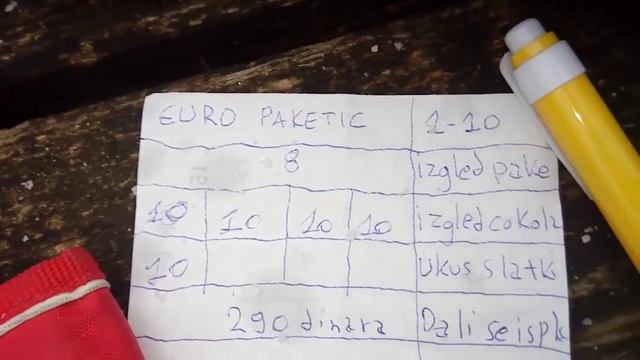 EURO PAKETIC 1-10
8 izgled pake
10 10 10 10 izgled cokola
10 Ukus slatk
290 dinara Dali se ispk